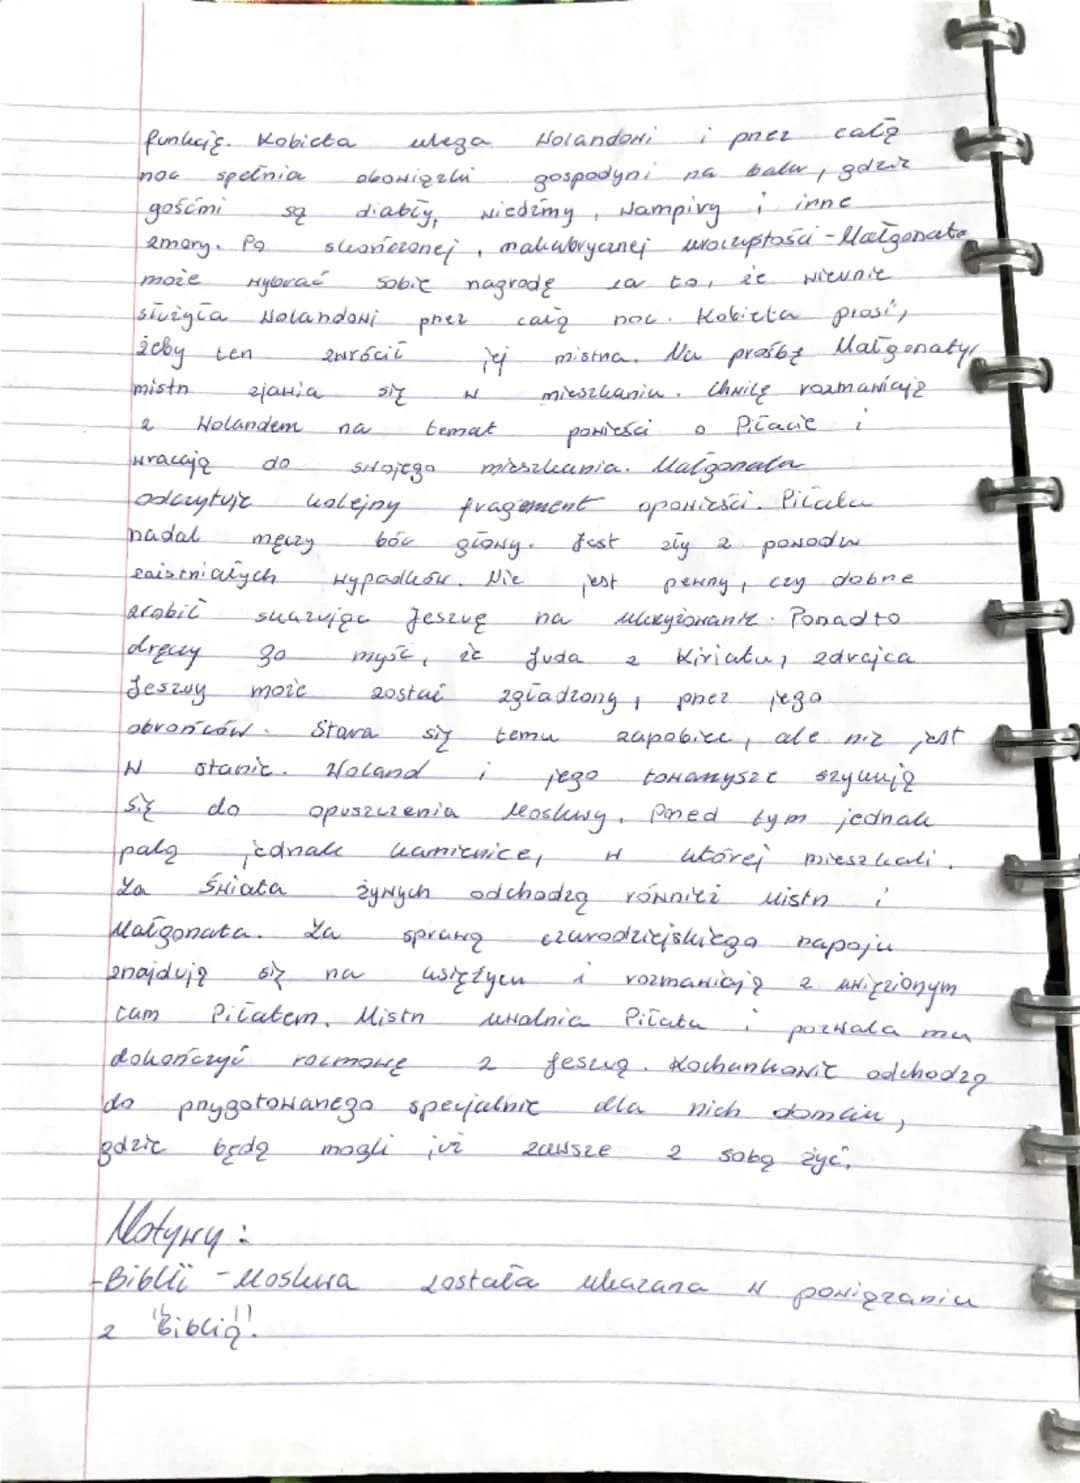 funkcję. Kobieta ulega Wolandowi i przez całą
noc spełnia obowiązki gospodyni na balu, gdzie
gośćmi są diabły, wiedźmy, wampiry i inne
zmory. Po skończonej, makabrycznej uroczystości - Małgorzata
może wybrać sobie nagrodę za to, że wiernie
służyła Wolandowi przez całą noc. Kobieta prosi,
żeby ten zwrócił jej mistrza. Na prośbę Małgorzaty
mistrz zjawia się w mieszkaniu. Chwilę rozmawiają
z Wolandem na temat powieści o Piłacie i
wracają do swojego mieszkania. Małgorzata
odczytuje kolejny fragment opowieści. Piłata
nadal męczy ból głowy. Jest zły z powodu
zaistniałych wypadków. Nie jest pewny, czy dobrze
zrobił skazując Jeszuę na ukrzyżowanie. Ponadto
dręczy go myśl, że Juda z Kiriatu, zdrajca
Jeszuy może zostać zgładzony, przez jego
obrońców. Stara się temu zapobiec, ale nie jest
w stanie. Woland i jego towarzysze szykują
się do opuszczenia Moskwy. Przed tym jednak
palą jednak kamienice, w której mieszkali.
Za świata żywych odchodzą również Mistrz i
Małgorzata. Za sprawą czarodziejskiego napoju
znajdują się na księżycu i rozmawiają z uwięzionym
tam Piłatem. Mistrz uwalnia Piłata i pozwala mu
dokończyć rozmowę z Jeszuą. Kochankowie odchodzą
do przygotowanego specjalnie dla nich domku,
gdzie będą mogli już zawsze z sobą żyć.
Motywy:
- Biblii - Moskwa została ukazana w powiązaniu
z "Biblią".